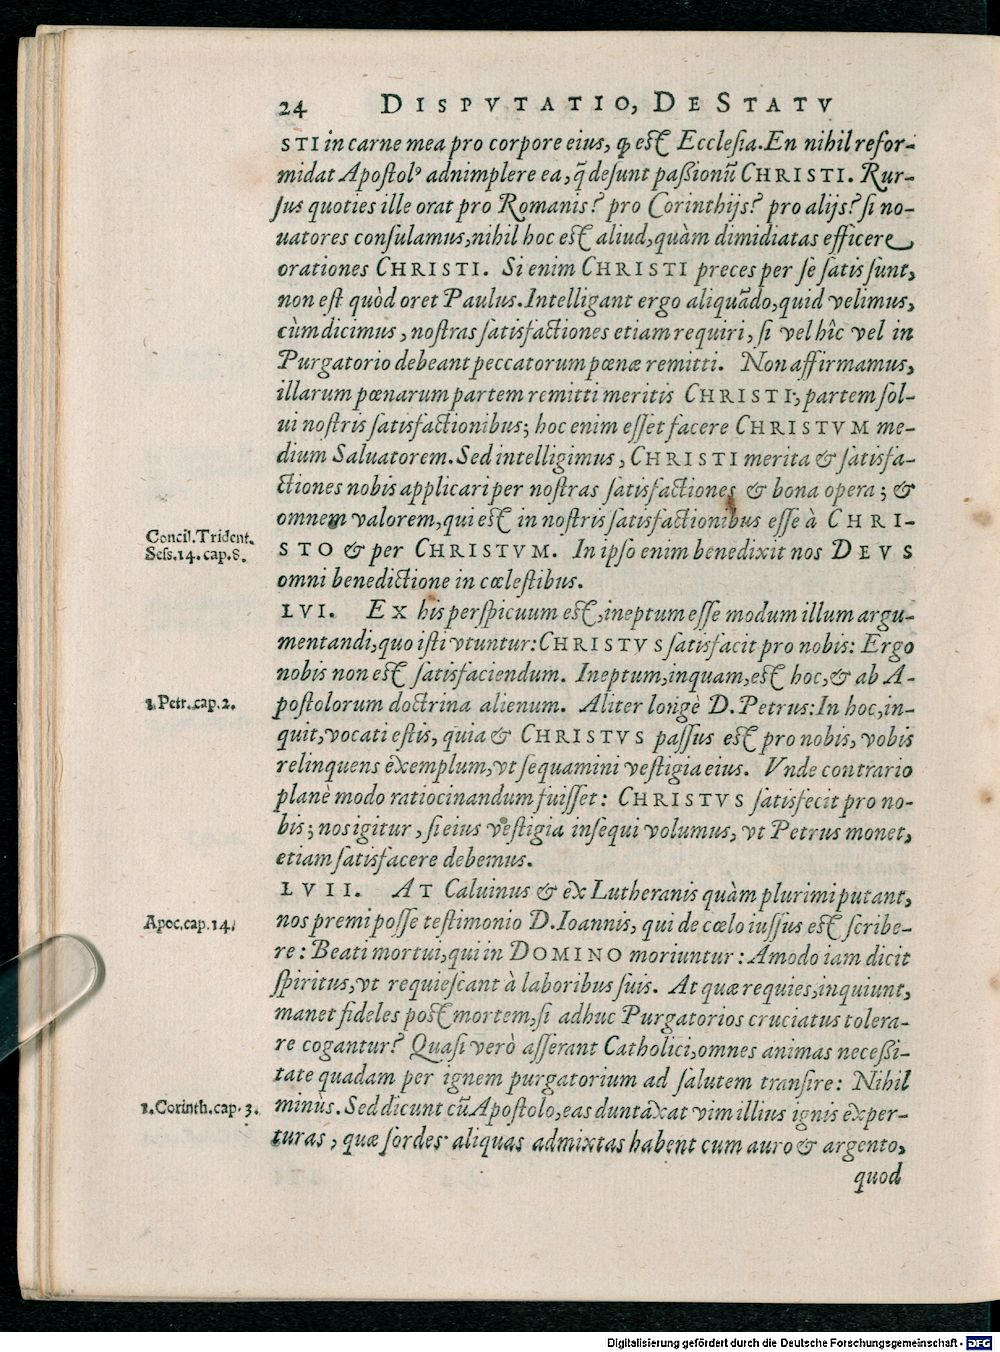 24 DISPVTATIO, DE STATV
STI in carne mea pro corpore eius, ꝙ est Ecclesia. En nihil refor-
midat Apostolꝰ adnimplere ea, q̃ desunt paßionũ CHRISTI. Rur-
sus quoties ille orat pro Romanis? pro Corinthijs? pro alijs? si no-
uatores consulamus, nihil hoc est aliud, quàm dimidiatas efficere
orationes CHRISTI. Si enim CHRISTI preces per se satis sunt,
non est quòd oret Paulus. Intelligant ergo aliquãdo, quid velimus,
cùm dicimus, nostras satisfactiones etiam requiri, si vel hîc vel in
Purgatorio debeant peccatorum pœnæ remitti. Non affirmamus,
illarum pœnarum partem remitti meritis CHRISTI, partem sol-
ui nostris satisfactionibus; hoc enim esset facere CHRISTVM me-
dium Saluatorem. Sed intelligimus, CHRISTI merita & satisfa-
ctiones nobis applicari per nostras satisfactiones & bona opera; &
omnem valorem, qui est in nostris satisfactionibus esse à CHRI-
Concil. Trident.
Sess. 14. cap. 8.
STO & per CHRISTVM. In ipso enim benedixit nos DEVS
omni benedictione in cœlestibus.
LVI. EX his perspicuum est, ineptum esse modum illum argu-
mentandi, quo isti vtuntur: CHRISTVS satisfacit pro nobis: Ergo
nobis non est satisfaciendum. Ineptum, inquam, est hoc, & ab A-
1. Petr. cap. 2.
postolorum doctrina alienum. Aliter longè D. Petrus: In hoc, in-
quit, vocati estis, quia & CHRISTVS passus est pro nobis, vobis
relinquens exemplum, vt sequamini vestigia eius. Vnde contrario
planè modo ratiocinandum fuisset: CHRISTVS satisfecit pro no-
bis; nos igitur, si eius vestigia insequi volumus, vt Petrus monet,
etiam satisfacere debemus.
LVII. AT Caluinus & ex Lutheranis quàm plurimi putant,
Apoc. cap. 14.
nos premi posse testimonio D. Ioannis, qui de cœlo iussus est scribe-
re: Beati mortui, qui in DOMINO moriuntur: Amodo iam dicit
spiritus, vt requiescant à laboribus suis. At quæ requies, inquiunt,
manet fideles post mortem, si adhuc Purgatorios cruciatus tolera-
re cogantur? Quasi verò asserant Catholici, omnes animas neceßi-
tate quadam per ignem purgatorium ad salutem transire: Nihil
1. Corinth. cap. 3.
minùs. Sed dicunt cũ Apostolo, eas duntaxat vim illius ignis exper-
turas, quæ sordes aliquas admixtas habent cum auro & argento,
quod
Digitalisierung gefördert durch die Deutsche Forschungsgemeinschaft - DFG